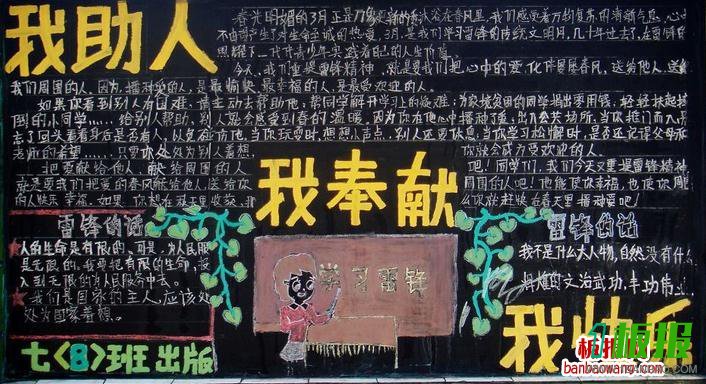 我助人
春光明媚的3月正是万象更新的
们感受着万物复苏的清新气息
3月,是我们学习雷锋的传统文明月,几十年过去了,在雷锋的
一代代青少年实践着自己的人生价值。
今天,我们重提雷锋精神,就是要我们把心中的爱,化作晨风,送给他人,送给
我们周围的人。因为,播种爱的人,是最愉快、最幸福的人,是最受欢迎的人。
如果你看到别人有困难,请主动去帮助他;帮同学解开学习上的疑难;为家境贫困的同学捐出零用钱;轻轻扶起摔
倒的小同学……给别人帮助,别人就会感受到春的温暖,因为你在他心中播种了爱;出入公共场所,当你推门而入,是
忘了回头看看身后是否有人,以免碰伤他;当你玩耍时,想想小声点,别人还要休息;当你学习松懈时,是否还记得父母和
老师的希望……只要你处处为别人着想,
你就会成为受欢迎的人。
把奉献给他人,献给周围的人
吧!同学们,我们今天又重提雷锋精神
就是要我们把爱的春风献给他人,送给你
周围的人吧!他能使你幸福,也使你周
的人快乐幸福。如果,你想在秋天里收获,那
么你就赶快在春天里播种爱吧!
我奉献
雷锋的话
★人的生命是有限的,可是,为人民服
是无限的,我要把有限的生命,投
入到无限的为人民服务中去。
★我们是国家的主人,应该处
处为国家着想。
七〈8〉班出版
学习雷锋
雷锋的话
我不是什么大人物,自然没有什么
辉煌的文治武功,丰功伟
我快乐
板报
banbaowang.com